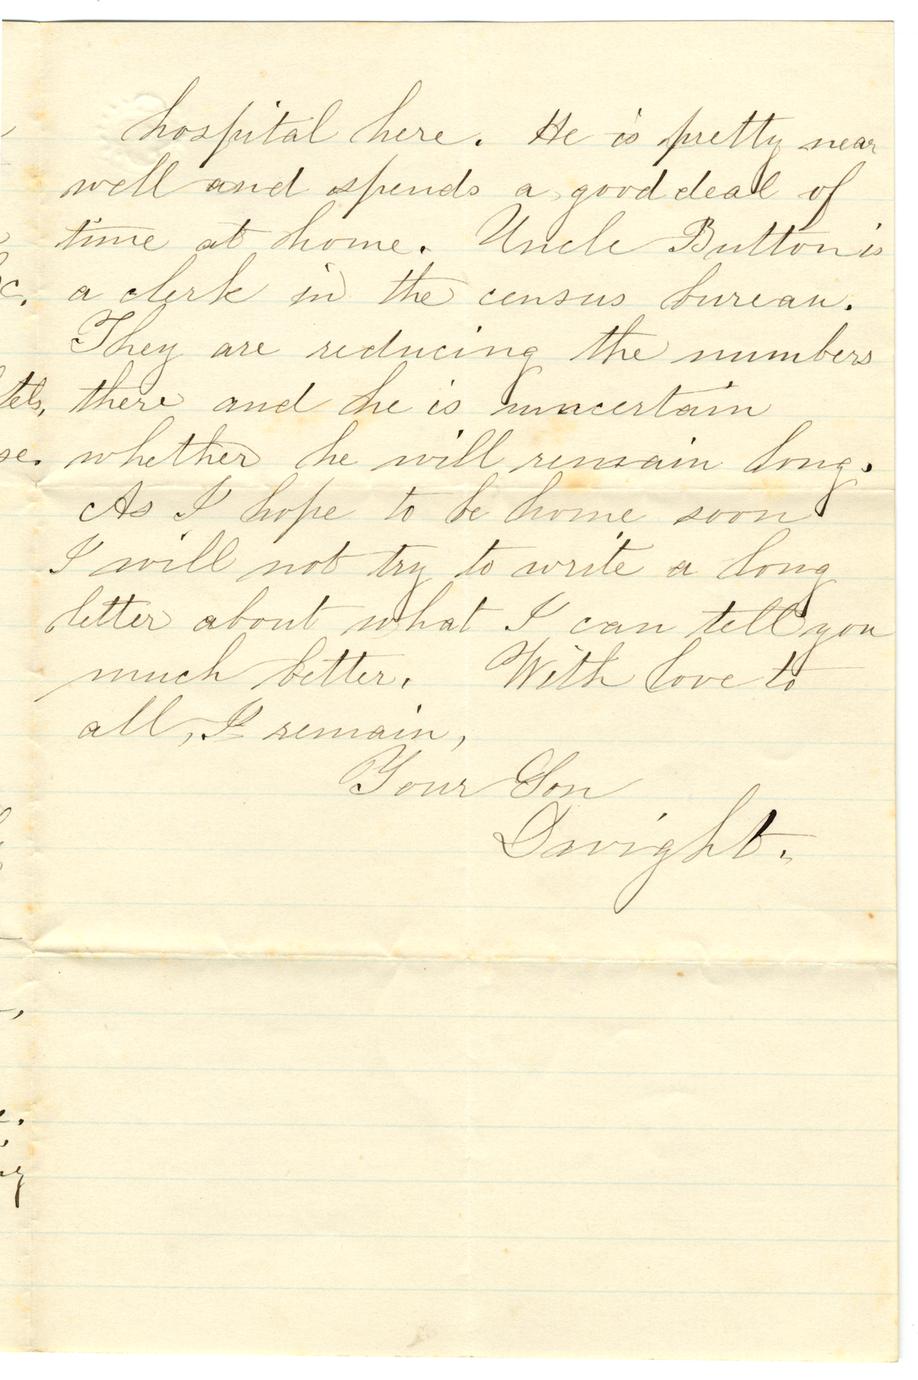 hospital here. He is pretty near
well and spends a good deal of
time at home. Uncle Button is
a clerk in the census bureau.
They are reducing the numbers
there and he is uncertain
whether he will remain long.
As I hope to be home soon
I will not try to write a long
letter about what I can tell you
much better. With love to
all, I remain,
Your Son
Dwight.